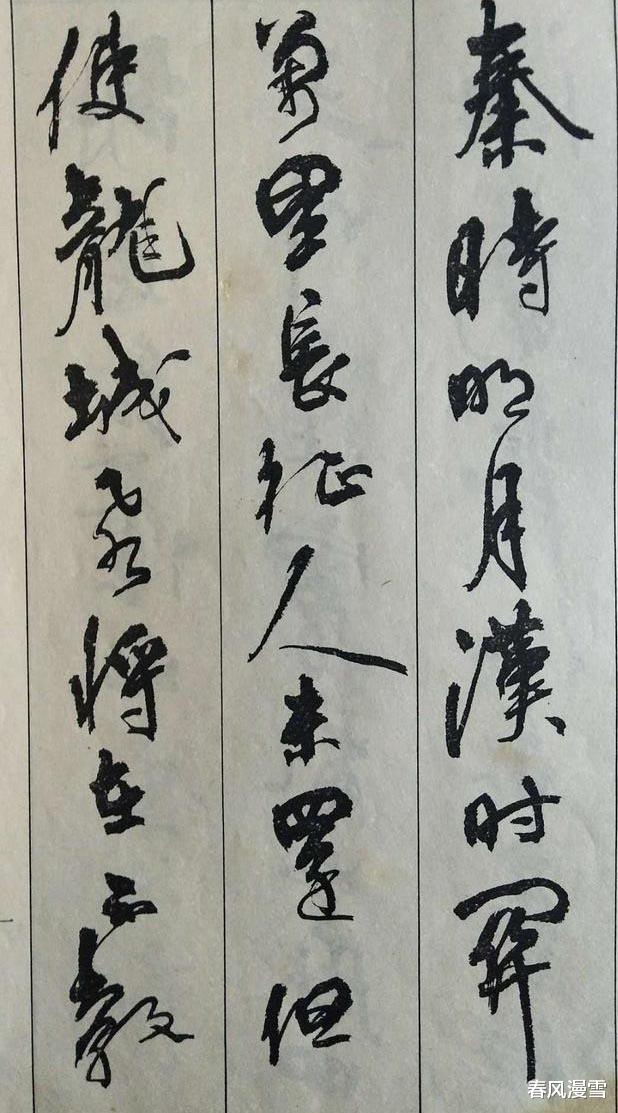 秦時明月漢时關
萬里長征人未還但
使龍城飛將在不教
春风漫雪